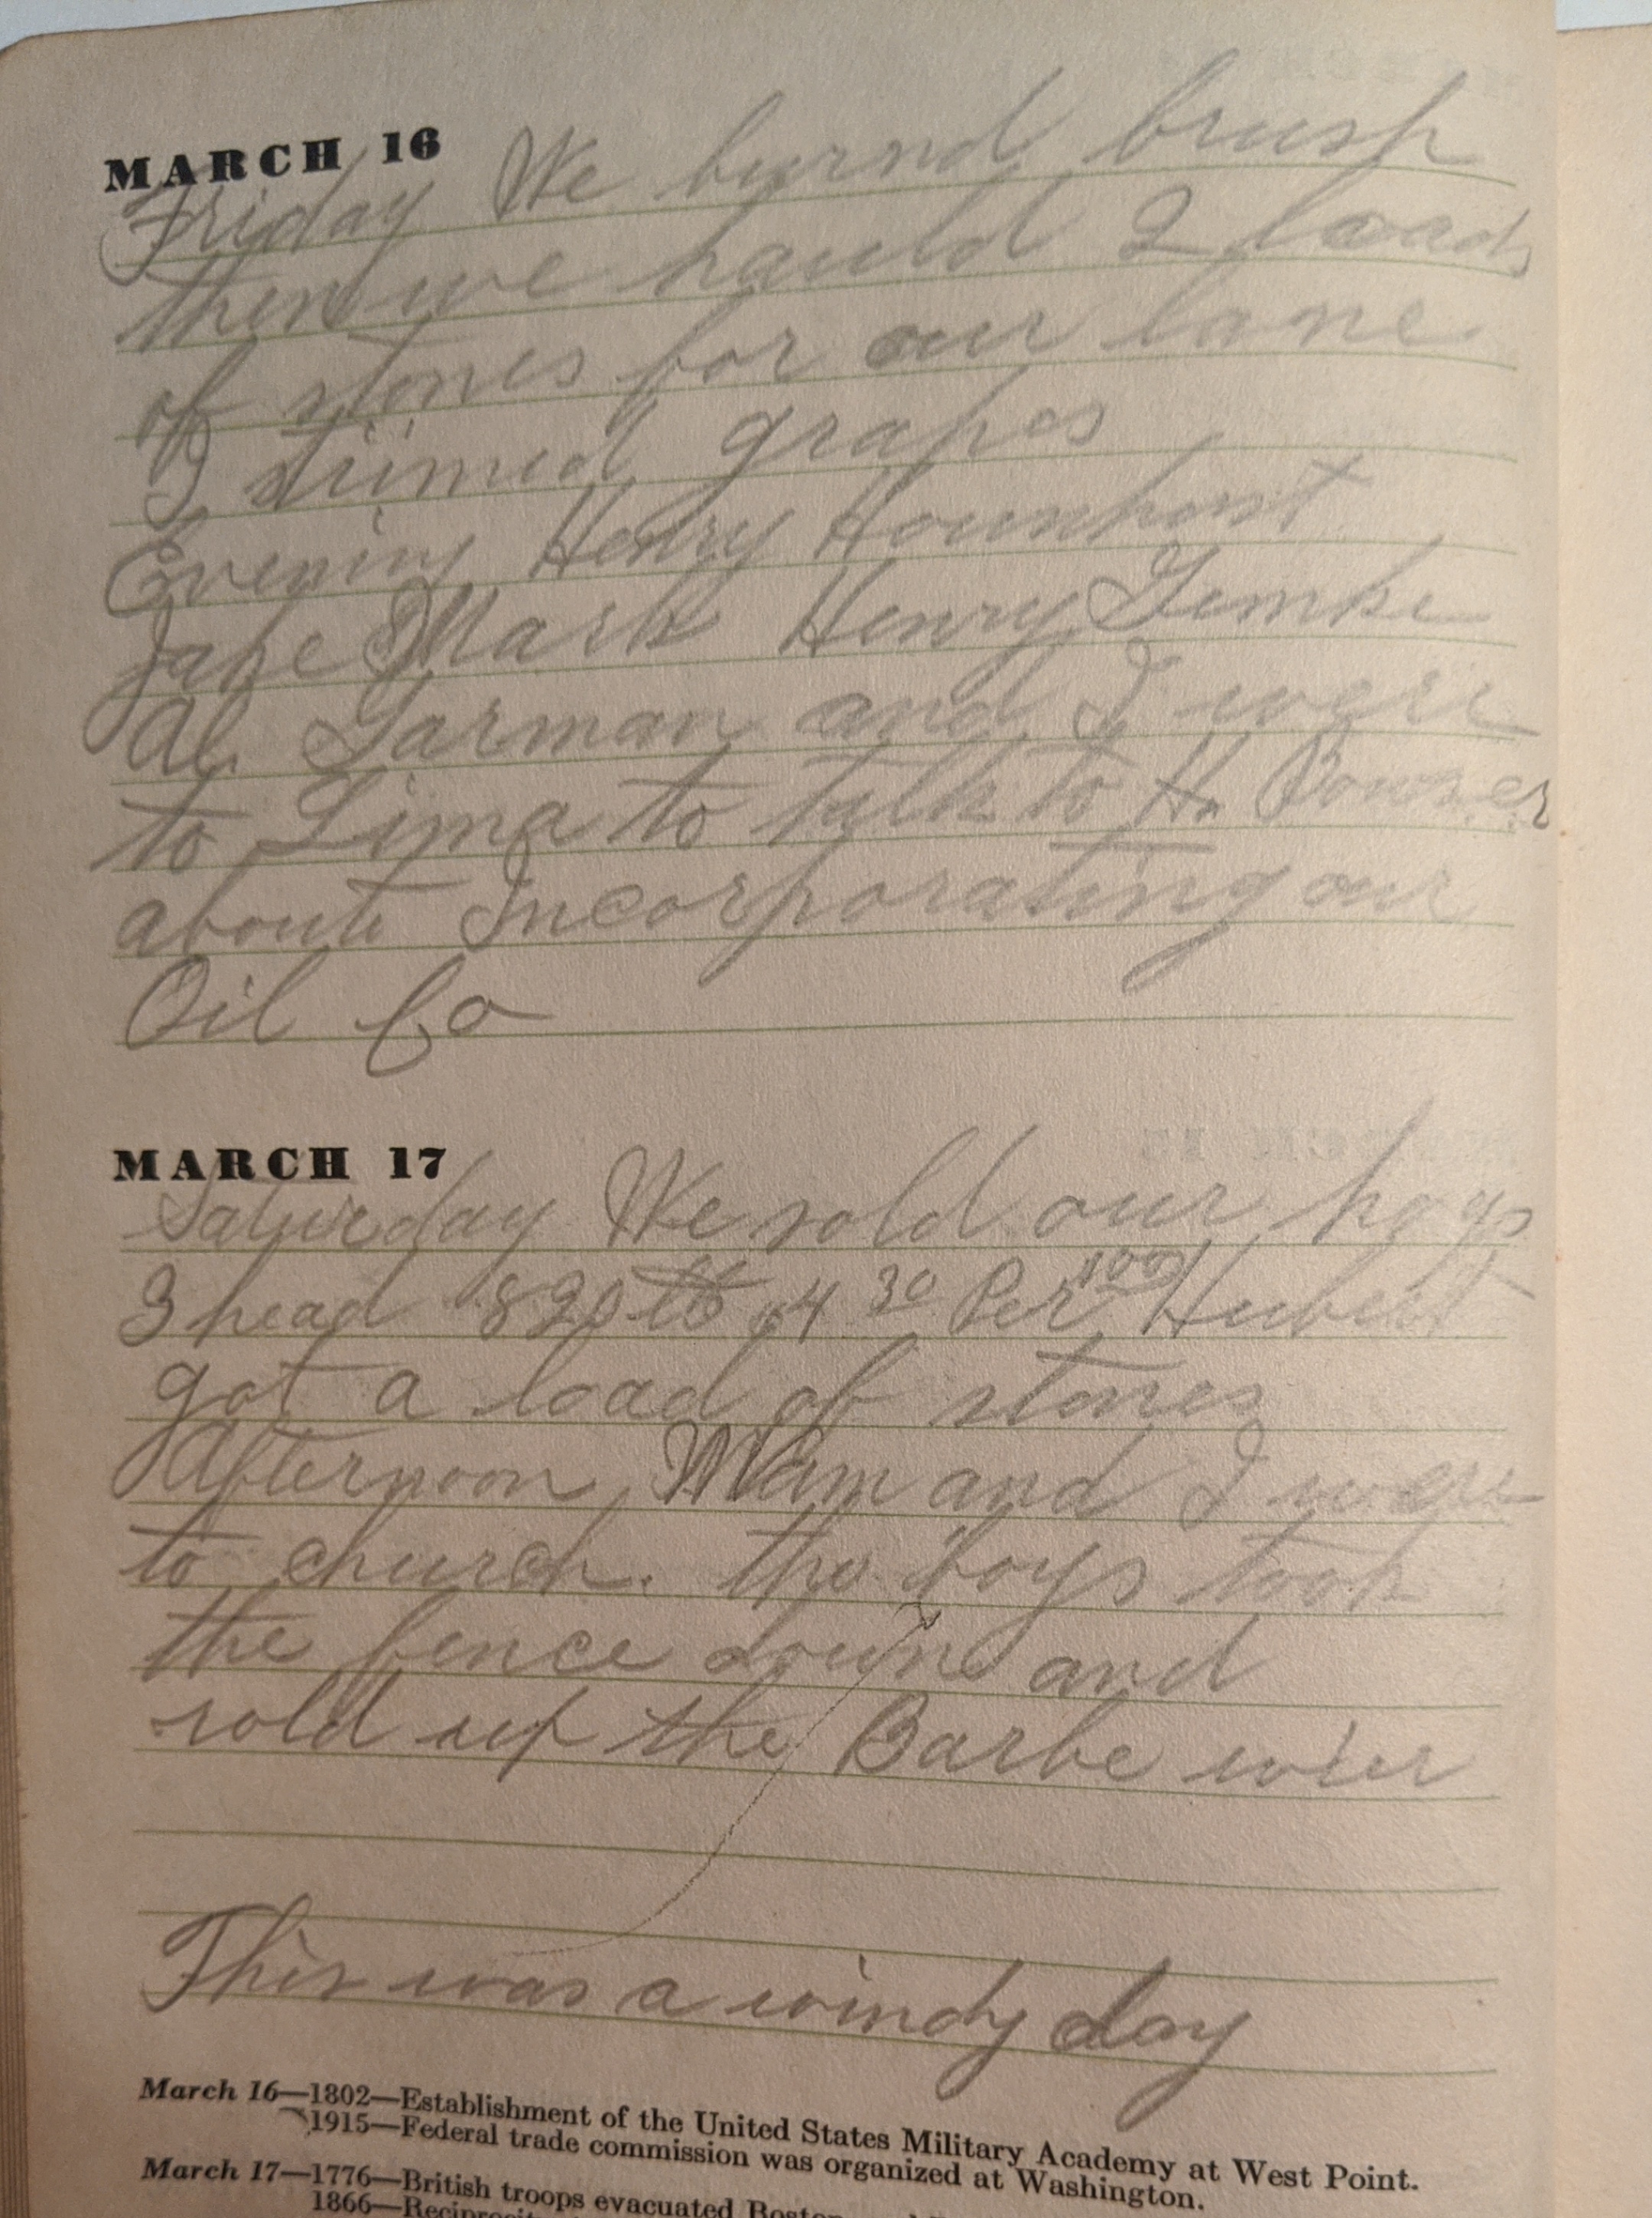 MARCH 16
Friday We burnd brush
then we hauld 2 loads
of stones for our lane
I trimed grapes
Evening Henry
Jake Mark Henry Gemke
Al. Garman and I were
to Lima to talk to Mr Bowser
about Incorporating our
Oil Co
MARCH 17
Saturday We sold our hogs
3 head 820 lb 4 30 Per 100 Hubert
got a load of stones
Afternoon Mam and I were
to church. the boys took
the fence down and
rold up the Barbe wier
This was a windy day
March 16—1802—Establishment of the United States Military Academy at West Point.
1915—Federal trade commission was organized at Washington.
March 17—1776—British troops evacuated
1866—